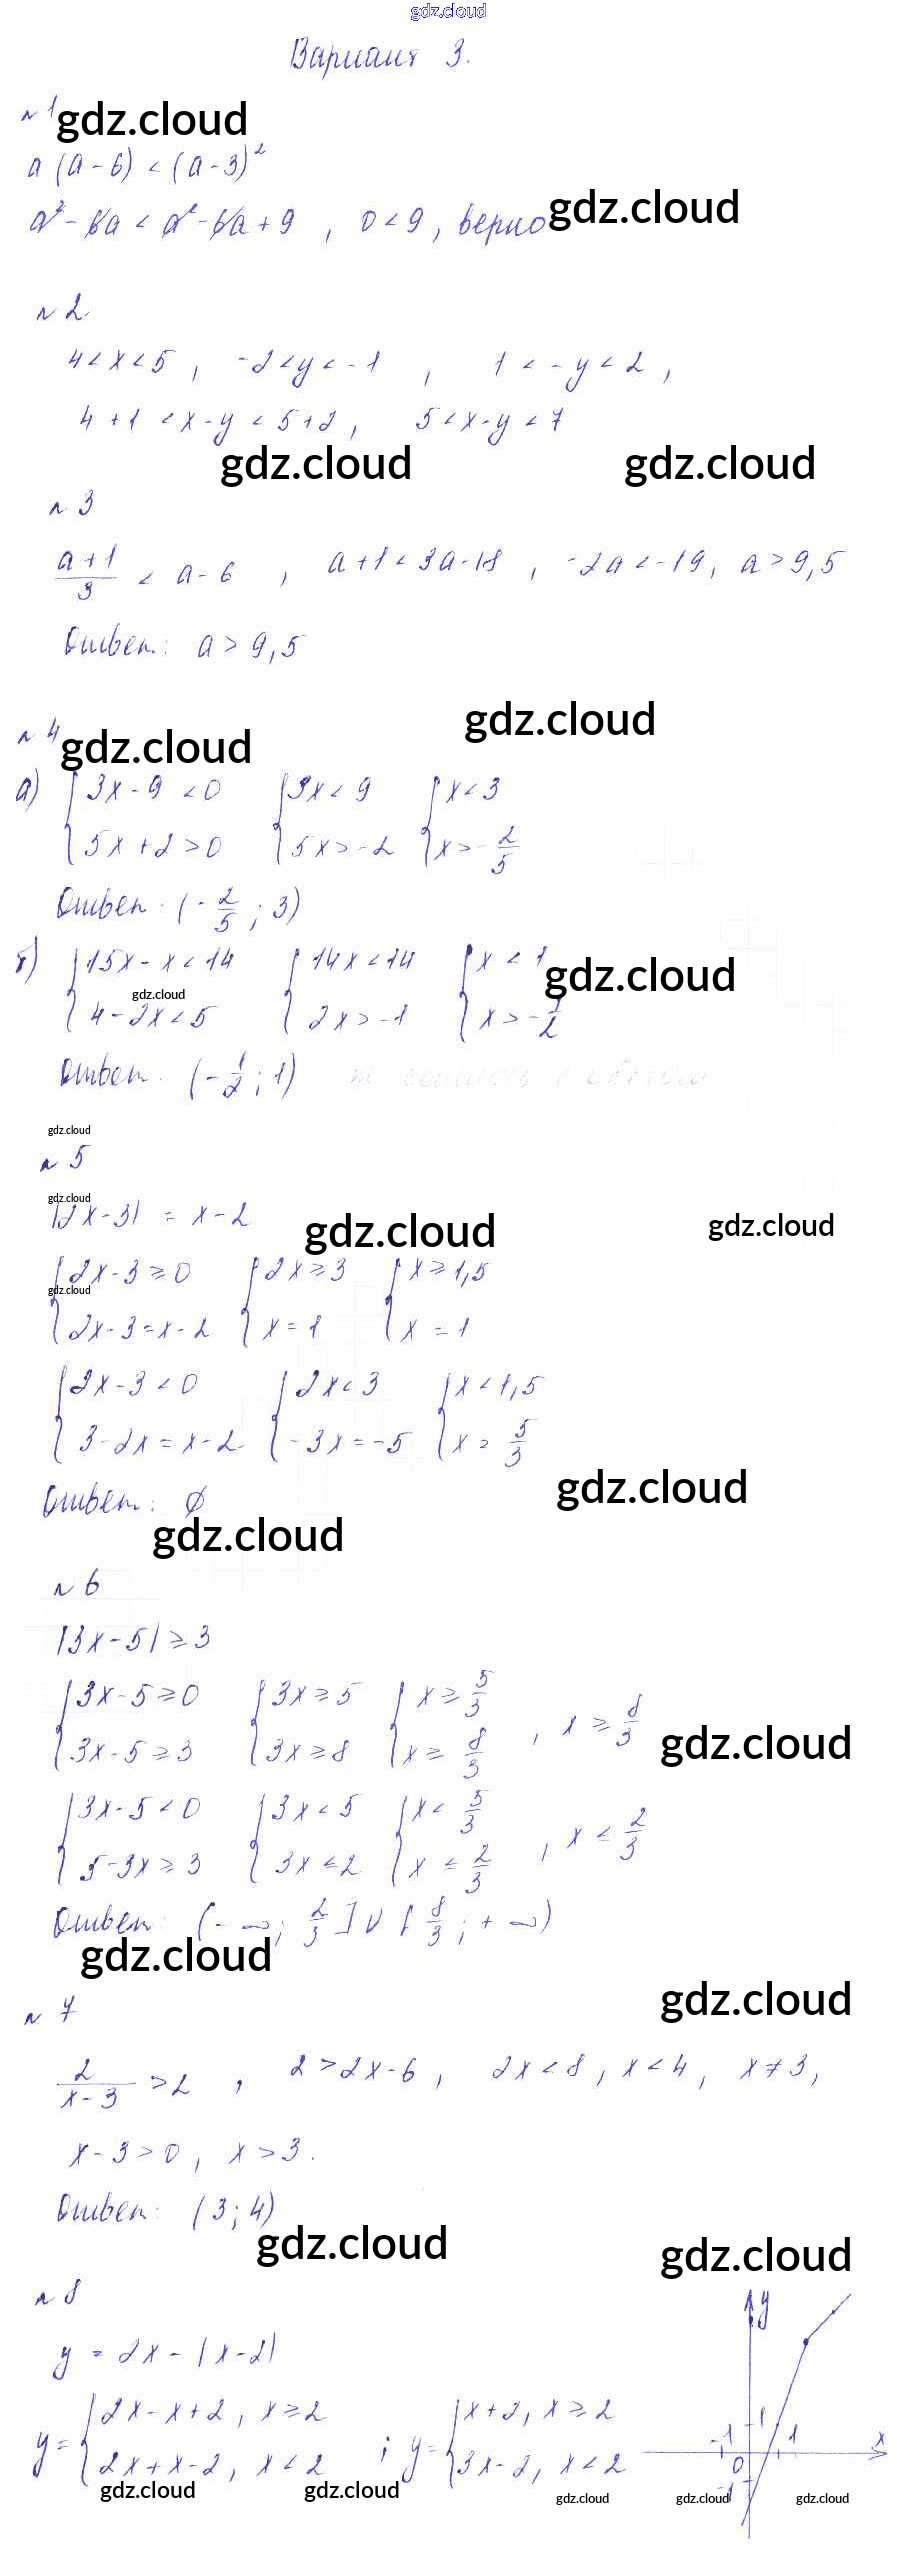 gdz.cloud
Вариант 3.
№ 1
gdz.cloud
a (a - 6) < (a - 3)²
a² - 6a < a² - 6a + 9 , 0 < 9, верно
gdz.cloud
№ 2
4 < x < 5 , -2 < y < -1 , 1 < -y < 2 ,
4 + 1 < x - y < 5 + 2 , 5 < x - y < 7
gdz.cloud gdz.cloud
№ 3
(a + 1)/3 < a - 6 , a + 1 < 3a - 18 , -2a < -19 , a > 9,5
Ответ: a > 9,5
gdz.cloud
№ 4
gdz.cloud
а) { 3x - 9 < 0 { 3x < 9 { x < 3
5x + 2 > 0 5x > -2 x > -2/5
Ответ: (-2/5 ; 3)
б) { 15x - x < 14 { 14x < 14 { x < 1
gdz.cloud gdz.cloud
4 - 2x < 5 2x > -1 x > -1/2
Ответ: (-1/2 ; 1)
gdz.cloud
№ 5
gdz.cloud
|2x - 3| = x - 2
gdz.cloud gdz.cloud
{ 2x - 3 ≥ 0 { 2x ≥ 3 { x ≥ 1,5
gdz.cloud
2x - 3 = x - 2 x = 1 x = 1
{ 2x - 3 < 0 { 2x < 3 { x < 1,5
3 - 2x = x - 2 -3x = -5 x = 5/3
Ответ: ∅
gdz.cloud
gdz.cloud
№ 6
|3x - 5| ≥ 3
{ 3x - 5 ≥ 0 { 3x ≥ 5 { x ≥ 5/3 , x ≥ 8/3
3x - 5 ≥ 3 3x ≥ 8 x ≥ 8/3
gdz.cloud
{ 3x - 5 < 0 { 3x < 5 { x < 5/3 , x ≤ 2/3
5 - 3x ≥ 3 3x ≤ 2 x ≤ 2/3
Ответ: (-∞; 2/3] ∪ [8/3 ; +∞)
gdz.cloud
gdz.cloud
№ 7
2/(x - 3) > 2 , 2 > 2x - 6 , 2x < 8 , x < 4 , x ≠ 3 ,
x - 3 > 0 , x > 3 .
Ответ: (3; 4)
gdz.cloud gdz.cloud
№ 8
y = 2x - |x - 2|
y = { 2x - x + 2 , x ≥ 2 ; y = { x + 2, x ≥ 2
2x + x - 2 , x < 2 3x - 2, x < 2
y
1
-1 1 x
0
-1
gdz.cloud gdz.cloud gdz.cloud gdz.cloud gdz.cloud